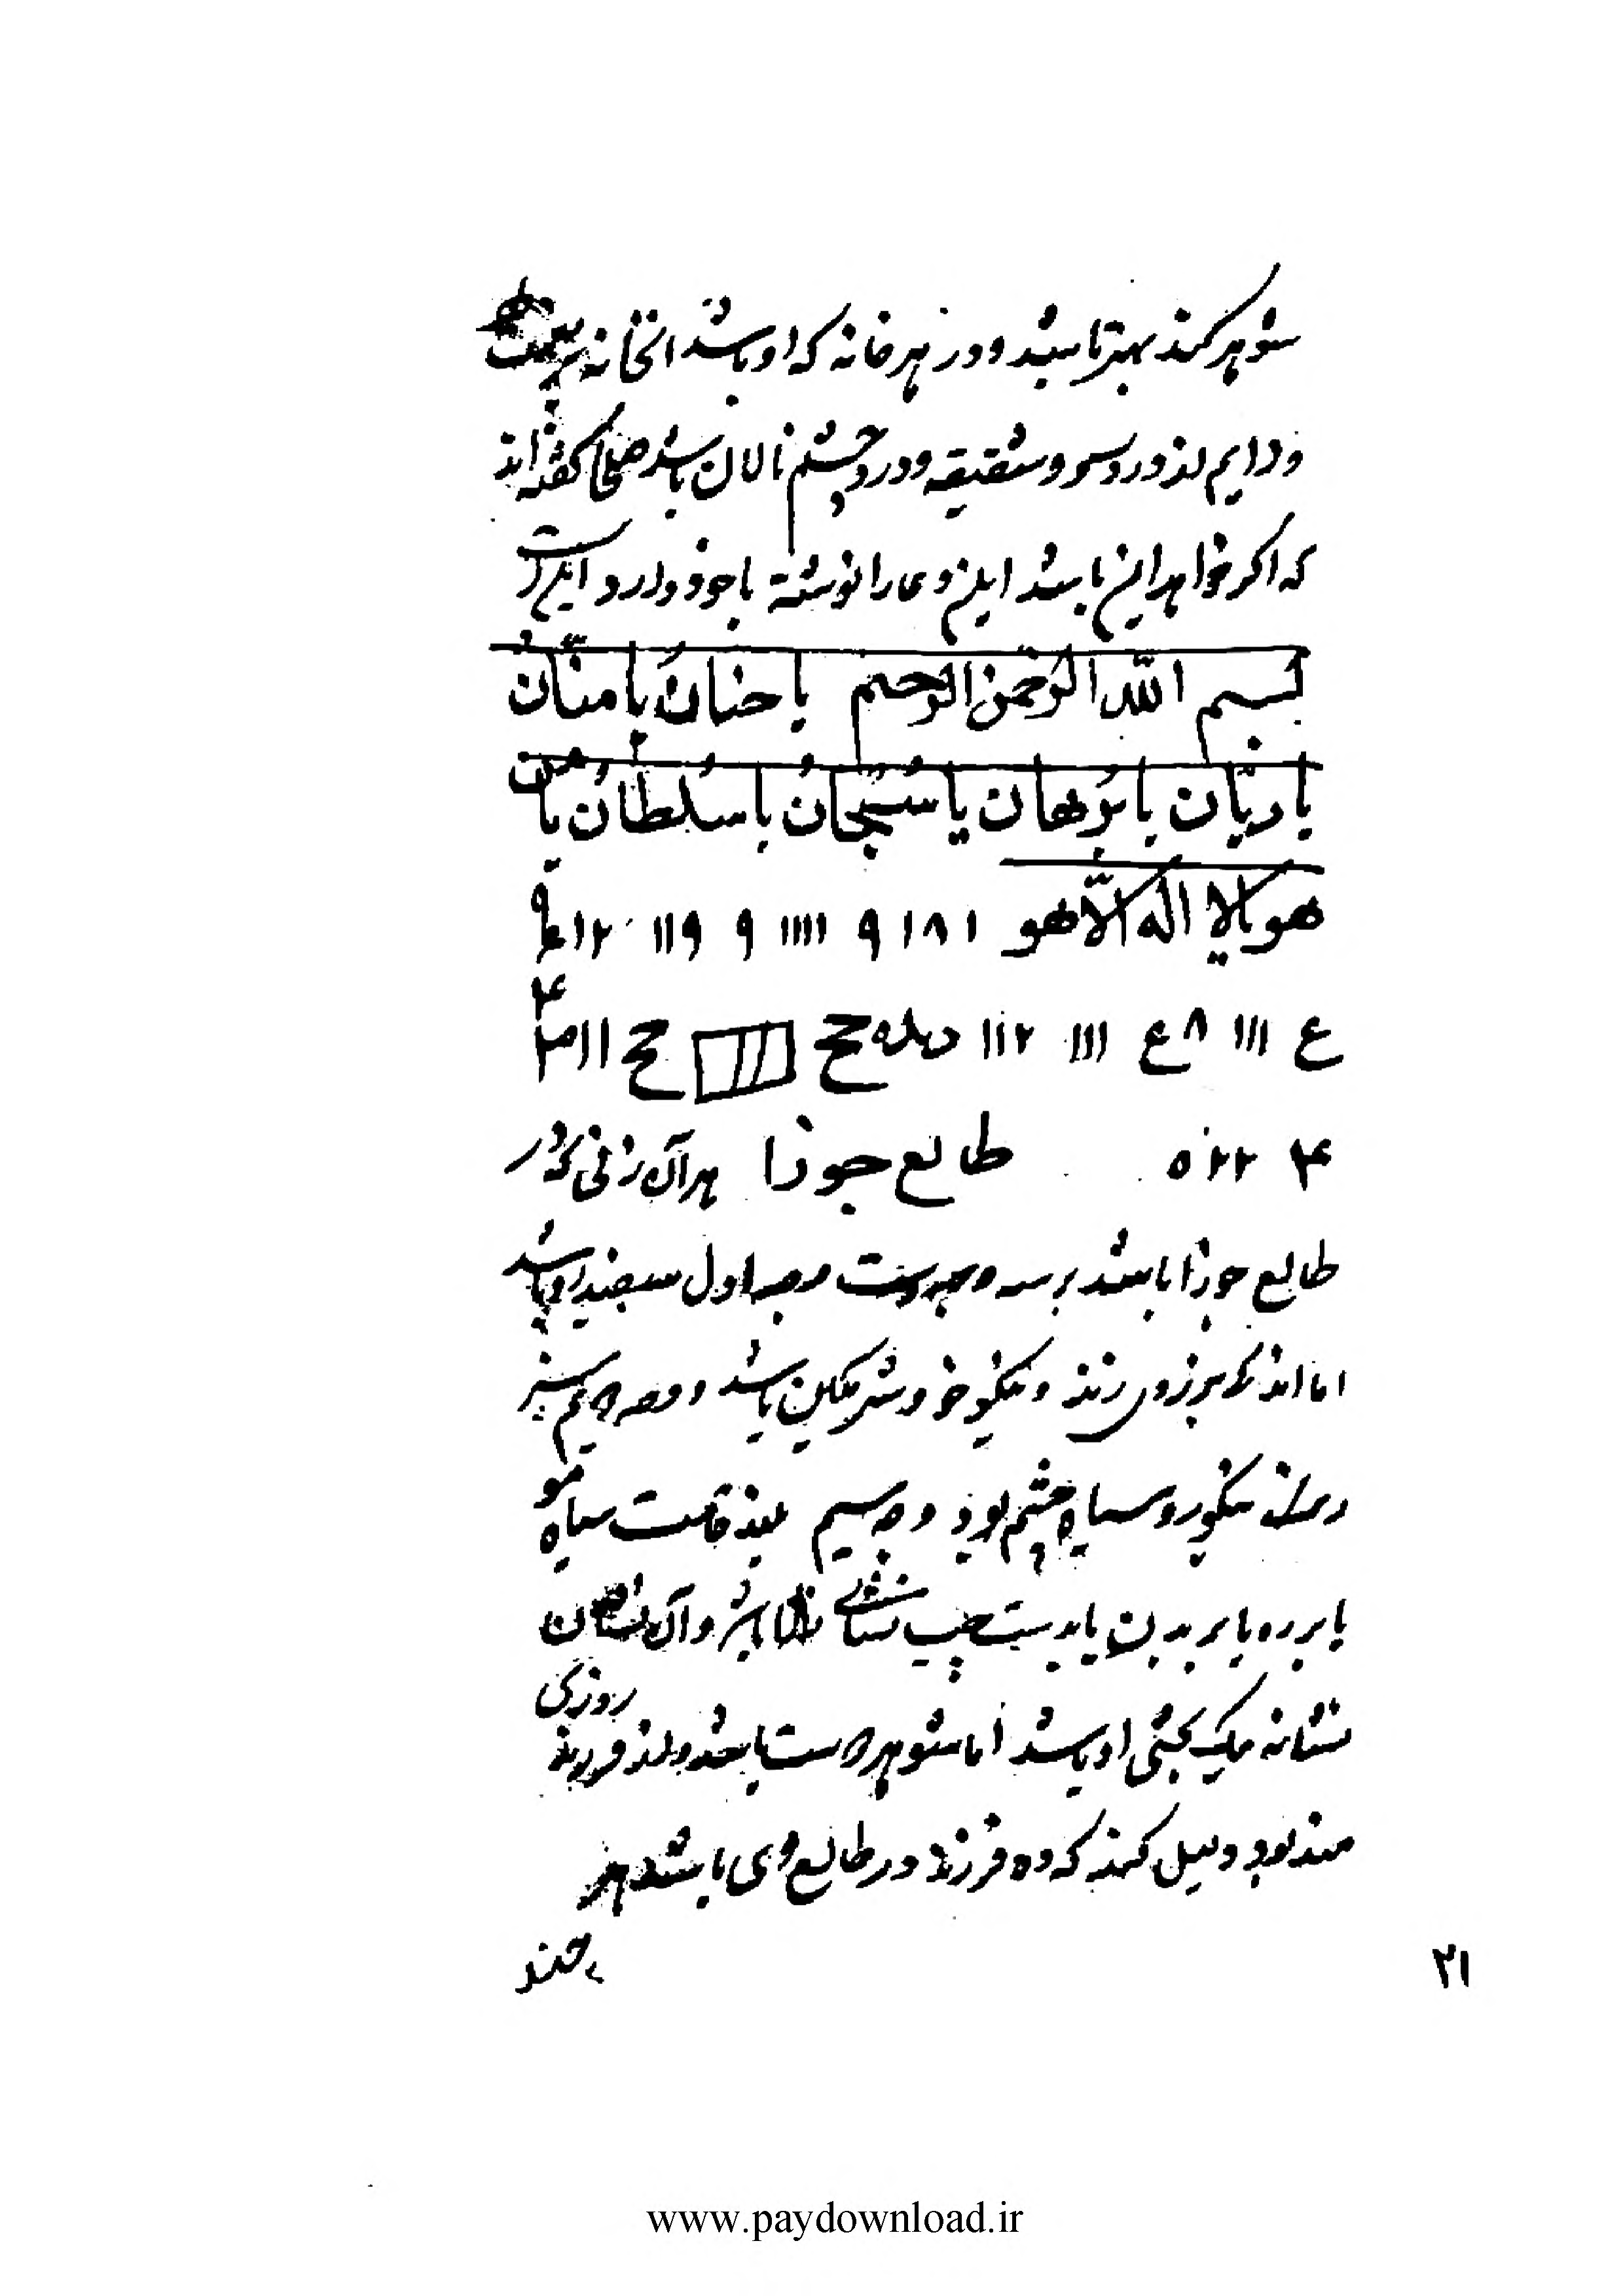 شوهر کند بهتر باشد و در هر خانه که او باشد انخانه
و دایم از درد سر و شقیقه و درد چشم نالان باشد حکما گفته اند
که اگر خواهد این باشد این دعا را نوشته با خود دارد اینست
بسم الله الرحمن الرحیم یا حنان یا منان
یا دیان یا برهان یا سبحان یا سلطان یا من
هو لا اله الا هو ۱ ۱۸ ۹ ۱۱۱۱ ۹ ۱۱۹
ع ۱۱۱ ۸ع ۱۱۱ ۱۱۲ ح ح
طالع جوزا هر آن زنی که در
طالع جوزا باشد بر سه وجه است وجه اول سفید رو باشد
اما اندک بزردی زند و نیکو خو و شرمگین باشد وجه دویم سبز
رنگ نیکو رو سیاه چشم بود وجه سیم بلند قامت سیاه مو
یا بر رو یا بر بدن یا بدست چپ نشانی باشد و آن نشان
نشانه نیک بختی او باشد اما شوهر دوست باشد و از فرزند روزی
مند بود دلیل کند که ده فرزند در طالع وی باشد هر
چند
۲۱
www.paydownload.ir